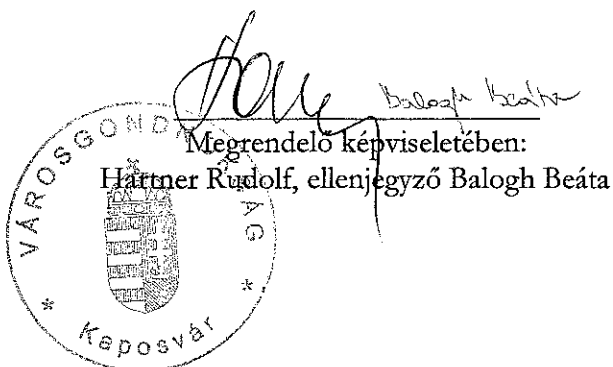 Balogh Beáta
Megrendelő képviseletében:
Hartner Rudolf, ellenjegyző Balogh Beáta
VÁROSGONDNOKSÁG
* Kaposvár *